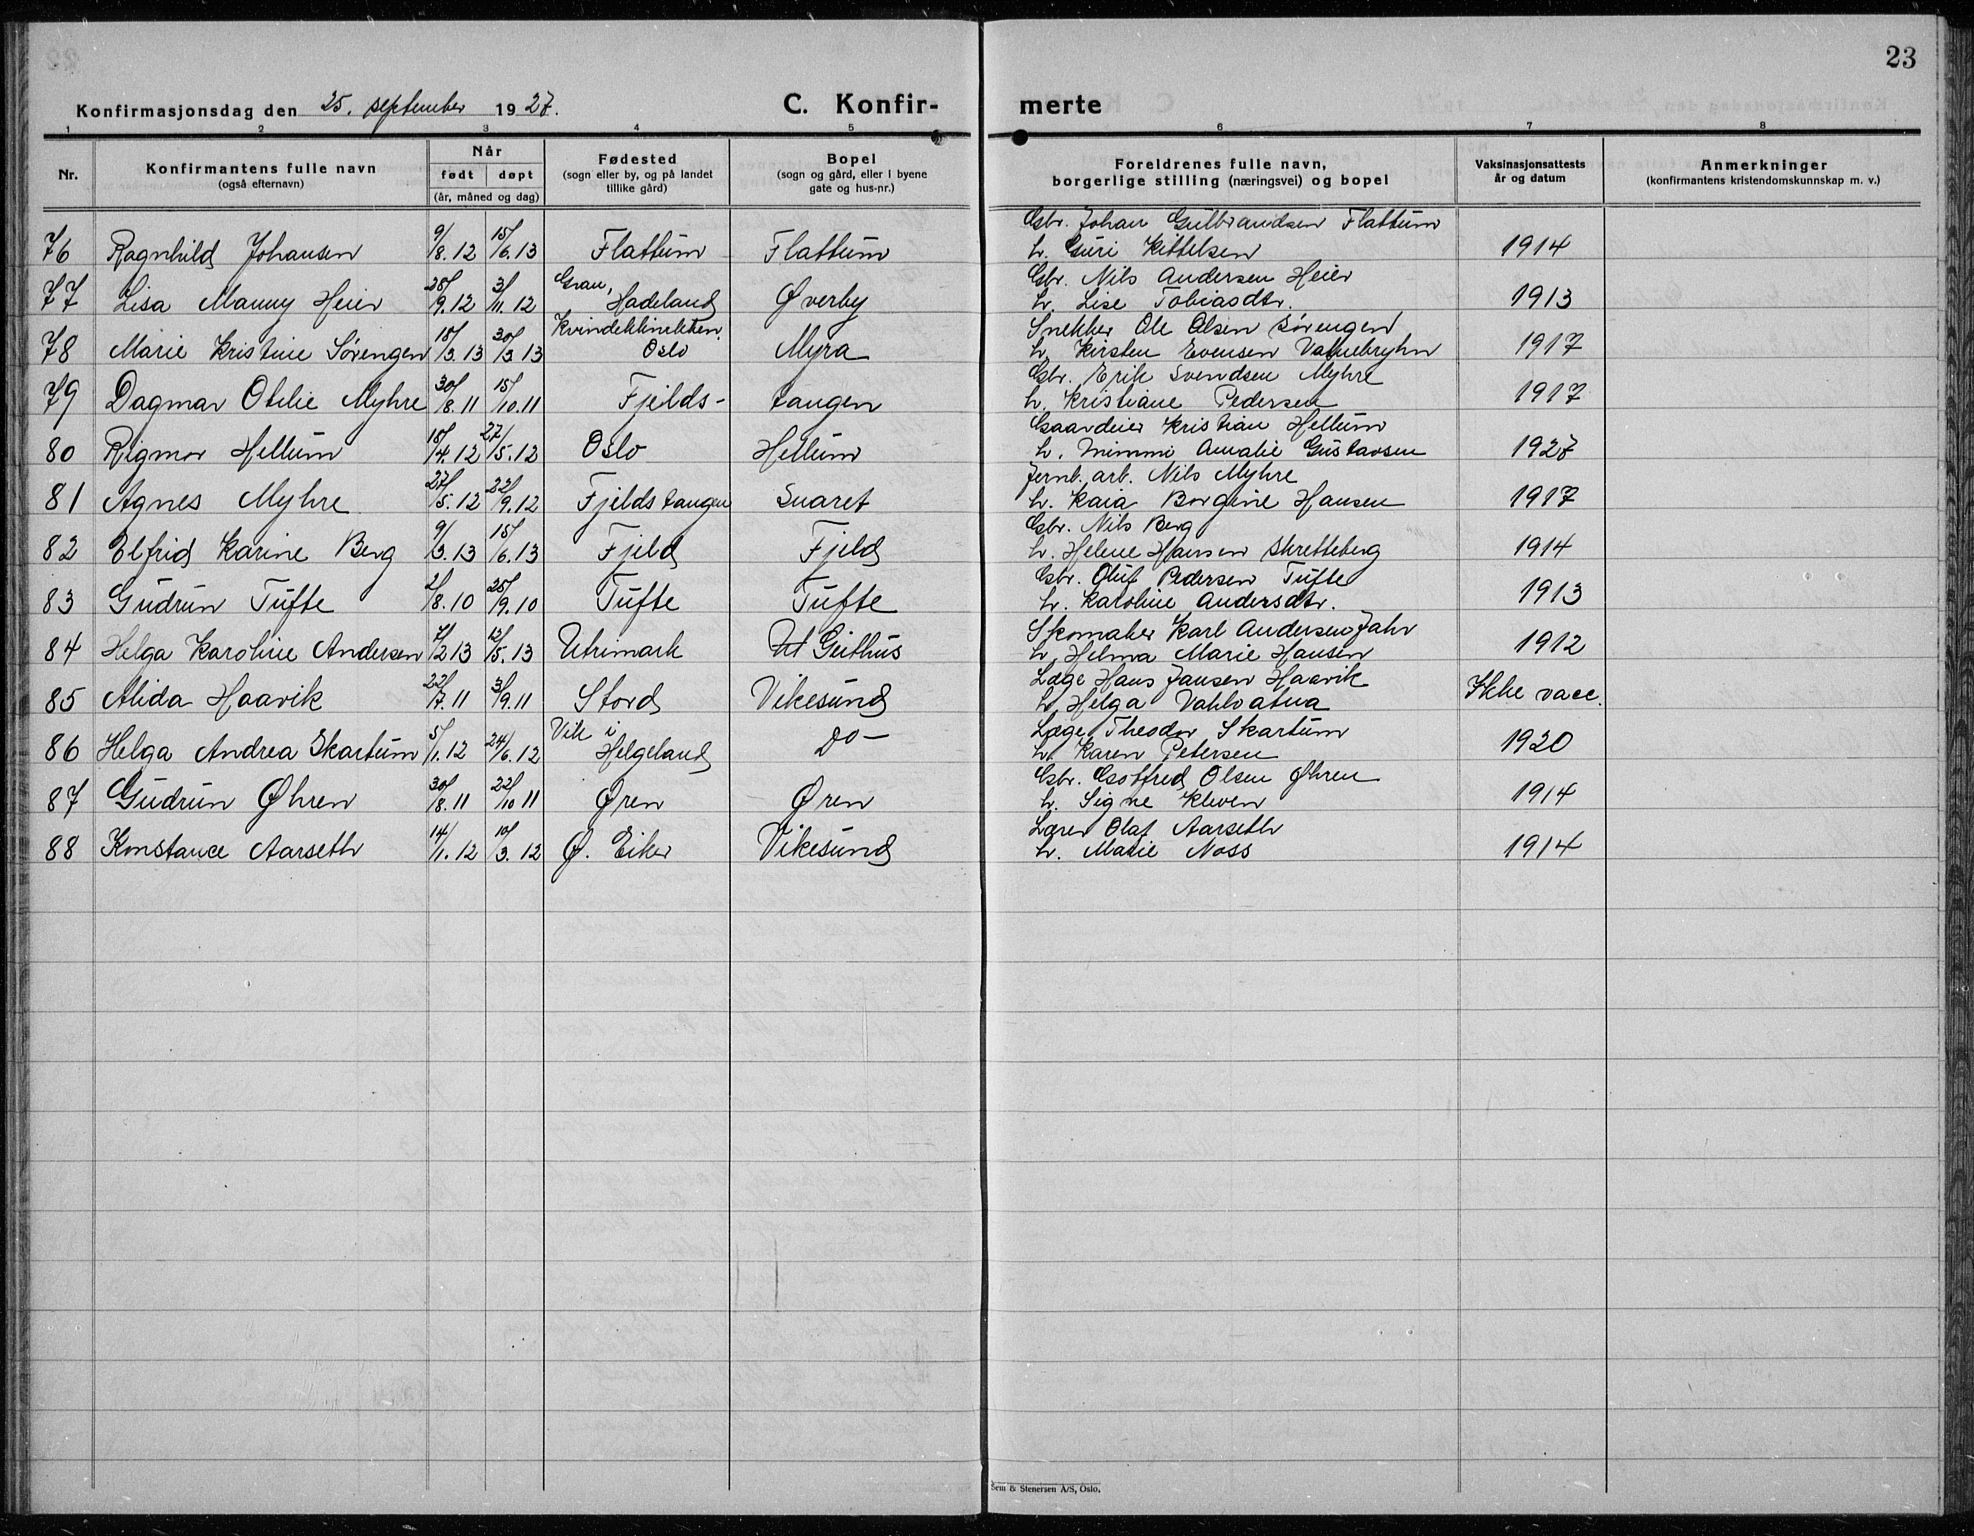 23
Konfirmasjonsdag den 25. september 1927. C. Konfir- merte
1 2 3 4 5 6 7 8
Nr. Konfirmantens fulle navn (også efternavn) Når født døpt (år, måned og dag) Fødested (sogn eller by, og på landet tillike gård) Bopel (sogn og gård, eller i byene gate og hus-nr.) Foreldrenes fulle navn, borgerlige stilling (næringsvei) og bopel Vaksinasjonsattests år og datum Anmerkninger (konfirmantens kristendomskunnskap m. v.)
Gbr. Johan Gulbrandsen Flattum
76 Ragnhild Johansen 9/8.12 15/6.13 Flattum Flattum h. Guri Kittelsen 1914
Gran, Gbr. Nils Andersen Heier
77 Lisa Manny Heier 28/9.12 3/11.12 Hadeland Øverby h. Lise Tobiasdtr. 1913
Kvindeklinikken, Snekker Ole Olsen Sørengen
78 Marie Kristine Sørengen 18/3 13 30/3 13 Oslo Myra h. Kirsten Evensen Vatnebryhn 1917
Gbr. Erik Svendsen Myhre
79 Dagmar Otelie Myhre 30/8.11 15/10.11 Fjelds- tangen h. Kristiane Pedersen 1917
Gaardeier Kristian Hellum
80 Rigmor Hellum 18/4.12 27/5.12 Oslo Hellum h. Mimmi Amalie Gustavsen 1927
Jernb. arb. Nils Myhre
81 Agnes Myhre 27/5.12 22/9.12 Fjeldstangen Snaret h. Kaia Borgine Hansen 1917
Gbr. Nils Berg
82 Elfrid Karine Berg 9/3.13 15/6.13 Fjeld Fjeld h. Helene Hansen Skretteberg 1914
Gbr. Oluf Pedersen Tufte
83 Gudrun Tufte 2/8.10 25/9.10 Tufte Tufte h. Karoline Andersdtr. 1913
Skomaker Karl Andersen Jahr
84 Helga Karoline Andersen 7/2 13 13/5.13 Utrimark Geithus h. Helma Marie Hansen 1912
Læge Hans Jansen Haavik
85 Alida Haavik 22/7.11 3/9.11 Stord Vikesund h. Helga Vatnaatua Ikke vacc.
Vik i Læge Theodor Skartum
86 Helga Andrea Skartum 5/1.12 24/6.12 Helgeland Do— h. Karen Petersen 1920
Gbr. Gotfred Olsen Øhren
87 Gudrun Øhren 30/8.11 22/10 11 Øren Øren h. Signe Kleven 1914
Lærer Olaf Aarseth
88 Konstance Aarseth 14/1.12 10/3.12 Ø. Eiker Vikesund h. Marie Noss 1914
Sem & Stenersen A/S, Oslo.